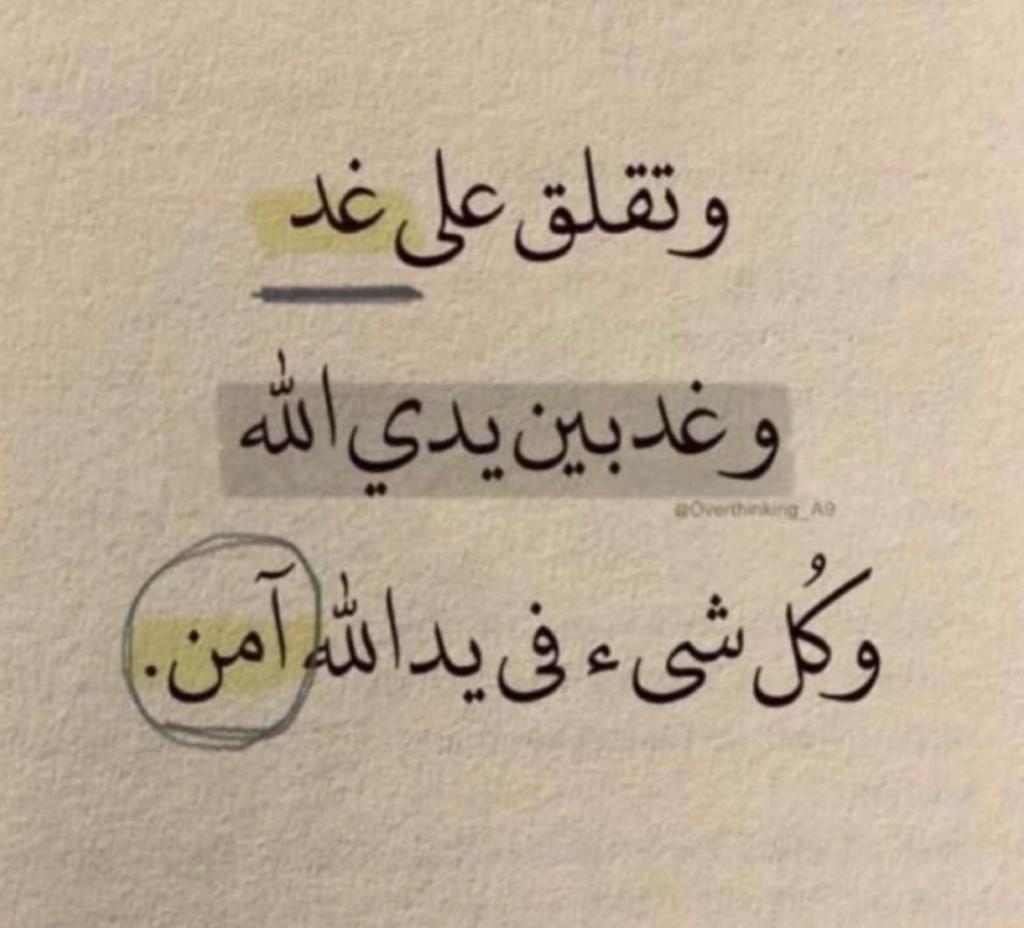 وتقلق على غد
وغد بين يدي الله
@Overthinking_A9
وكُل شىء فى يد الله آمن.